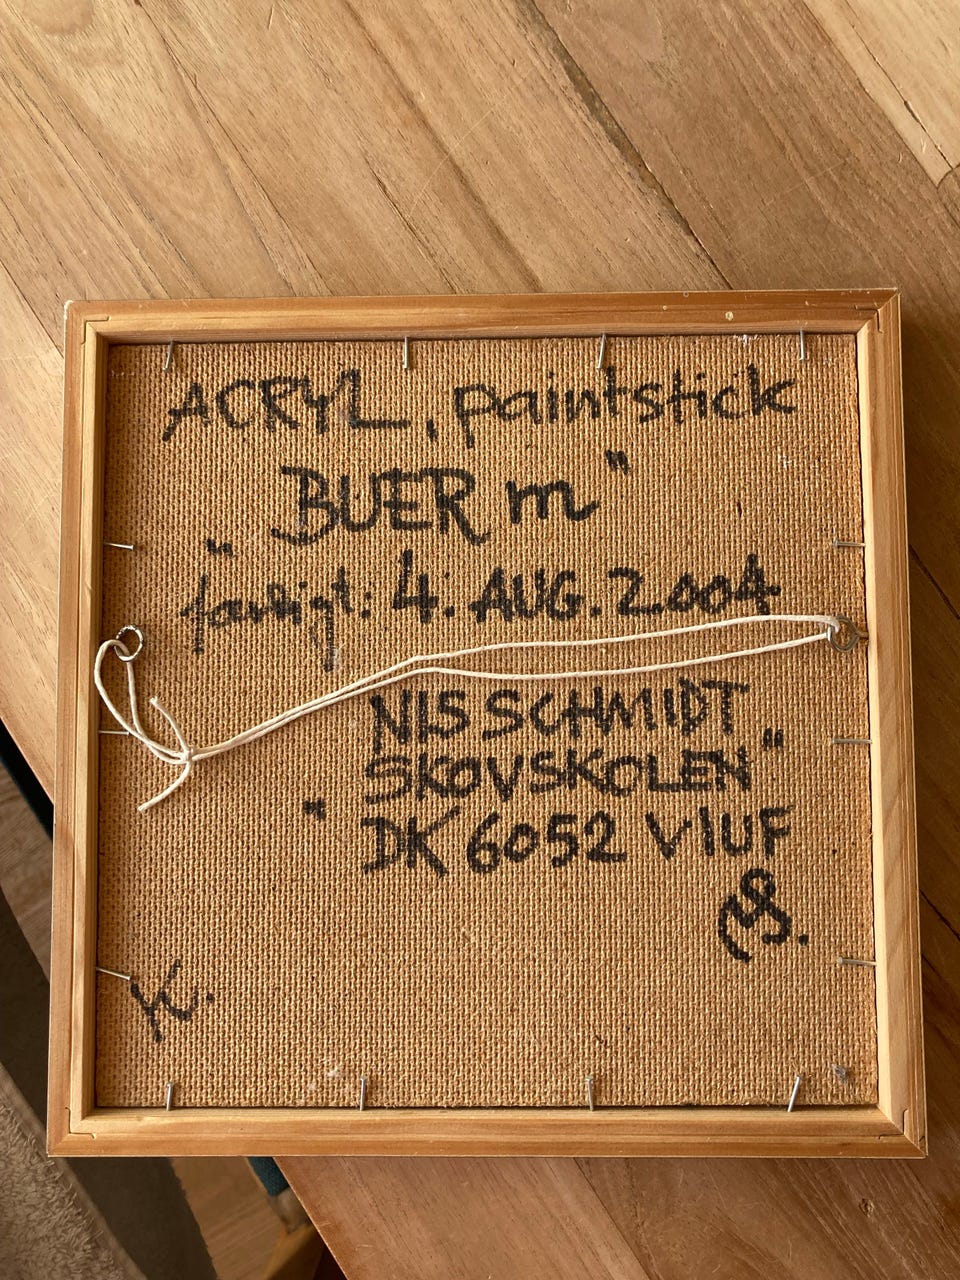 ACRYL, paintstick
"BUER m"
færdigt: 4. AUG. 2004
NIS SCHMIDT
"SKOVSKOLEN"
DK 6052 VIUF